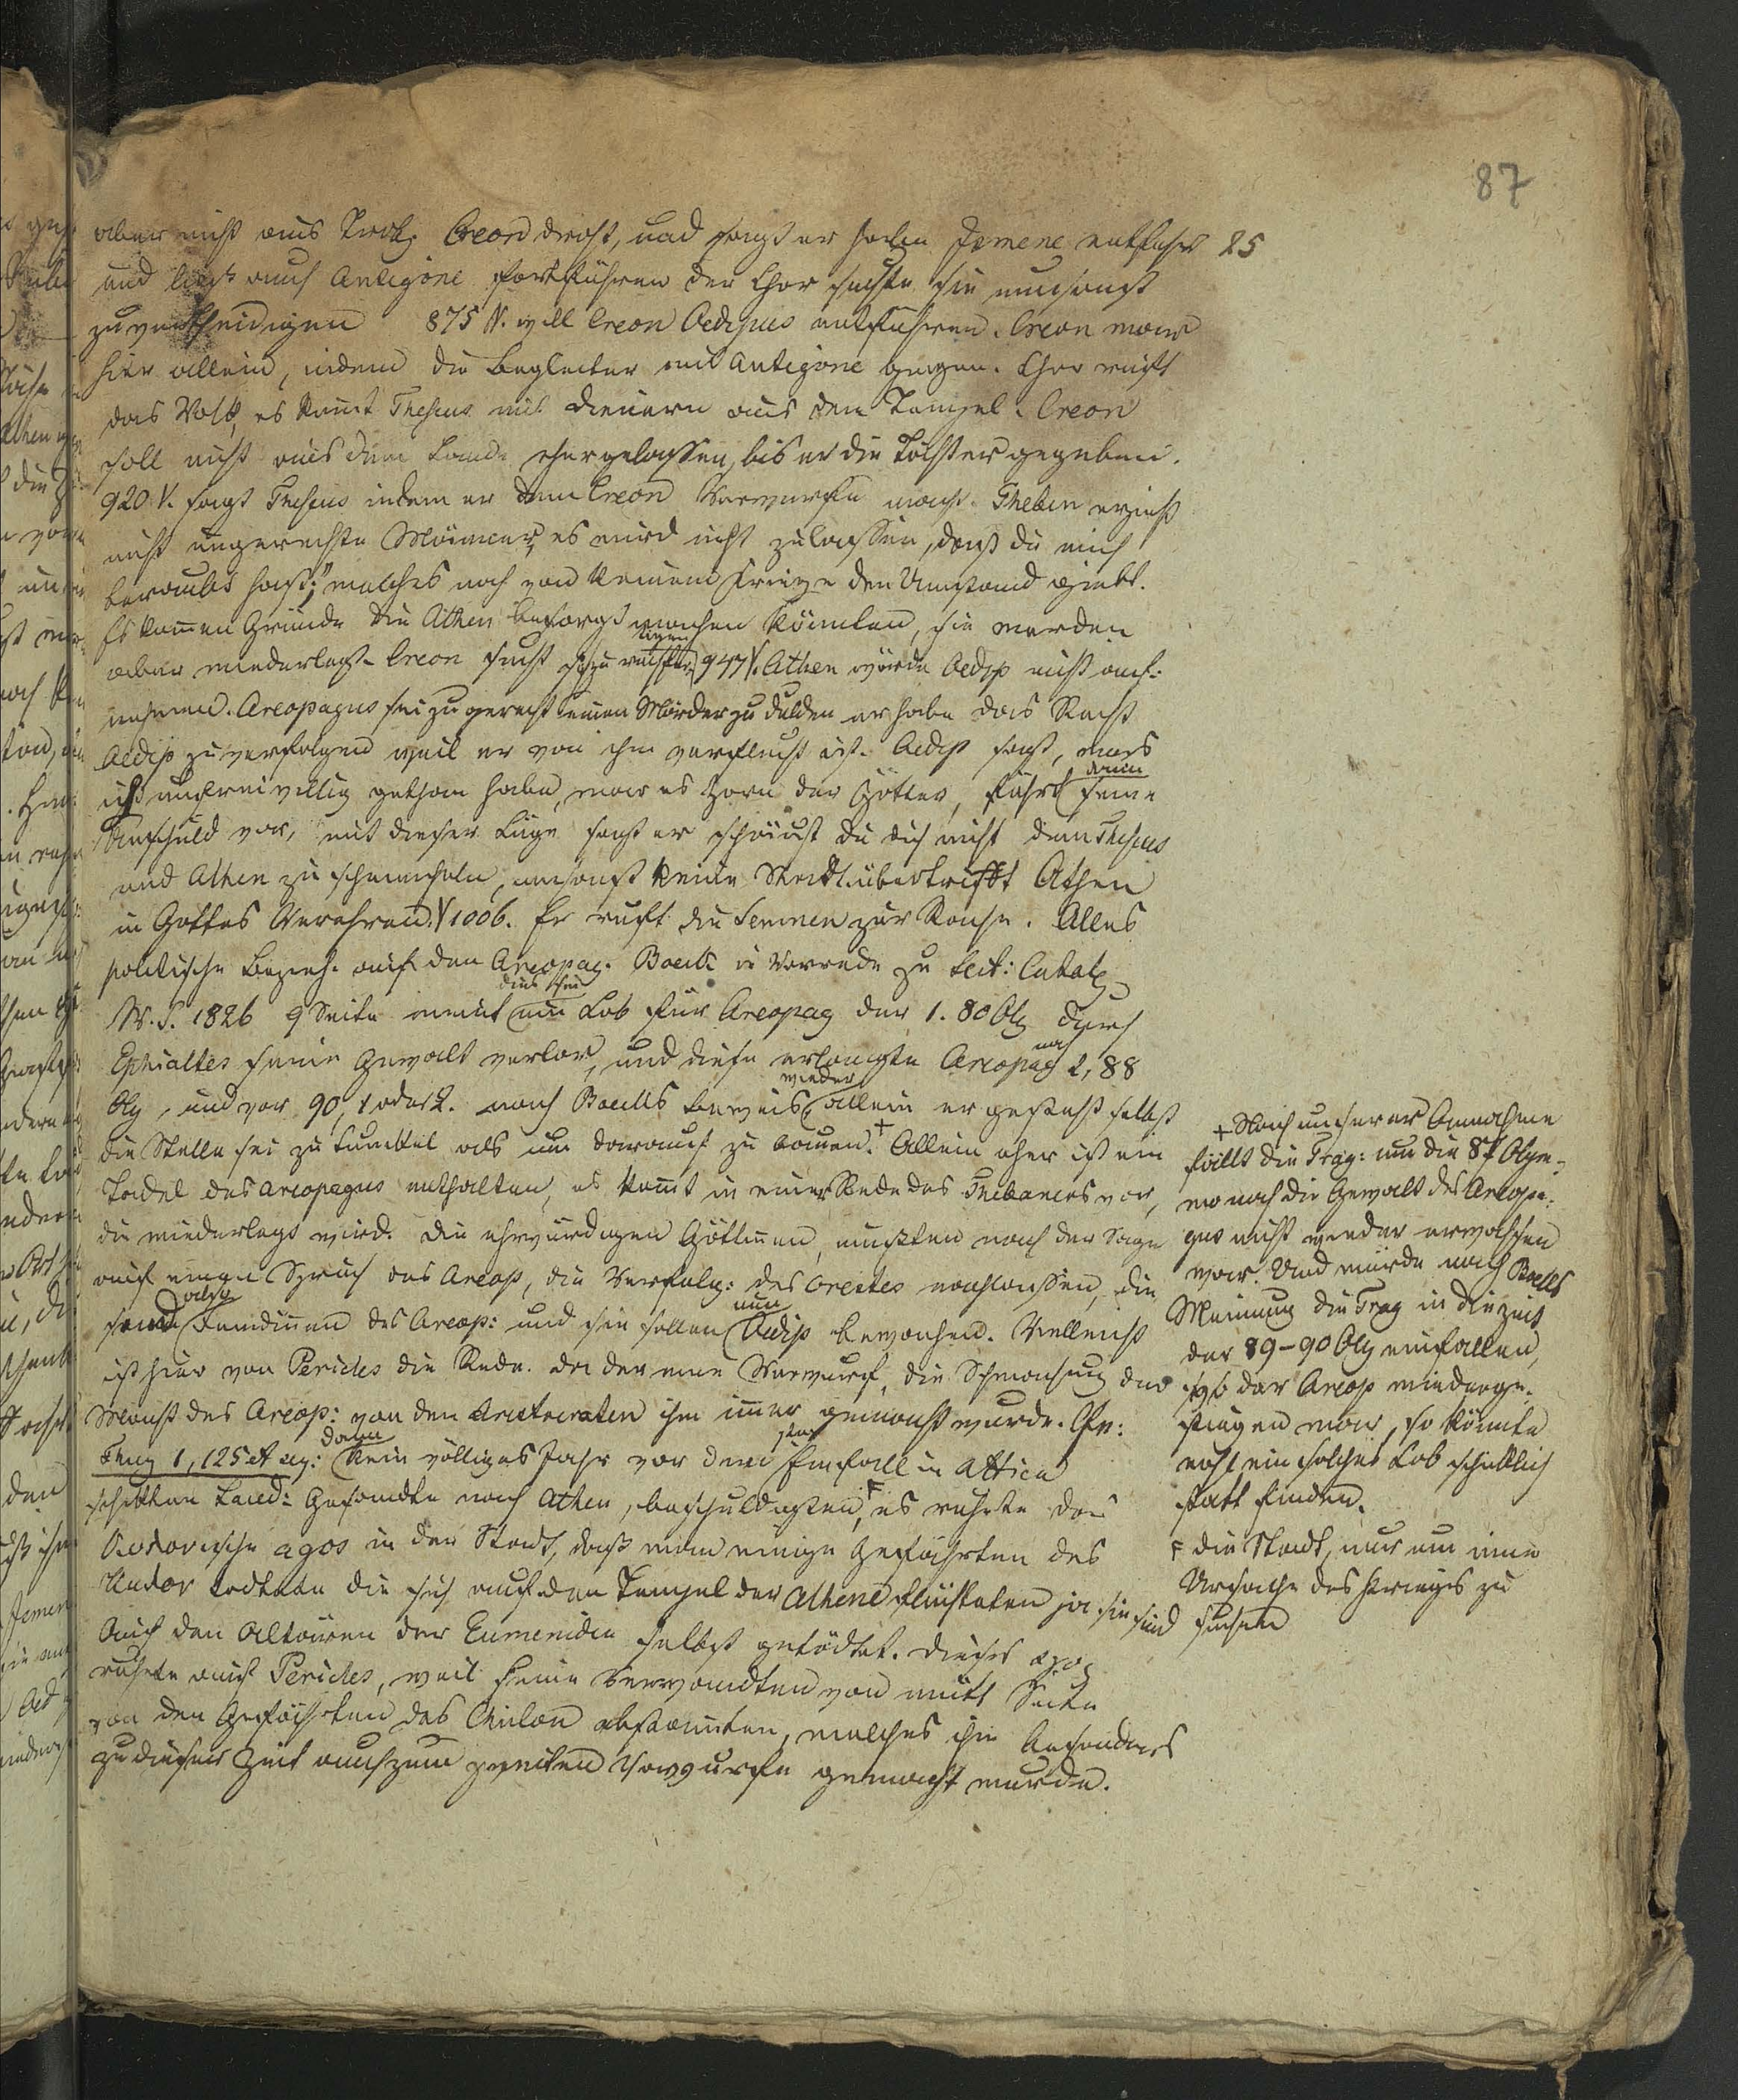 87
25
aber nicht aus Trotz. Creon droht, und sagt er habe Ismene entführt
und läßt auch Antigone fortführen der Chor suchte sie umsonst
zu vertheidigen 875 V. will Creon Oedipus entführen. Creon war
hier allein, indem die Begleiter mit Antigone gingen. Chor ruft
das Volk, es komt Theseus mit Dienern aus dem Tempel. Creon
soll nicht aus dem Lande eher gelassen, bis er die Töchter gegeben.
920 V. sagt Theseus indem er dem Creon Vorwürfe macht. Theben erzieht
nicht ungerechte Männer, es wird nicht zulassen, daß du mich
beraubt hast;" welches noch von keinem Kriege den Umstand giebt.
Es komen Gründe die Athen besorgt machen könnten, sie werden
aber wiederlegt. Creon sucht sich zu rechtfertigen 947 V. Athen würde Aedip nicht auf-
nehmen. Areopagus sei zu gerecht einen Mörder zu dulden er habe das Recht
Aedip zu verfolgen weil er von ihm verflucht ist. Aedip sagt, was
ich unfreiwillig gethan habe, war es Zorn der Götter, führt dann seine
Unschuld vor, mit dieser Lüge sagt er scheust du dich nicht dem Theseus
und Athen zu schmeicheln, umsonst keine Stadt übertrifft Athen
in Gottes Verehren. V 1006. Er ruft die Semnen zur Rache. Alles
politische Bezieh. auf den Areopag. Boeckh in Vorrede zu Lect: Catal.
W. S. 1826 9 Seite meint dies sei ein Lob für Areopag der 1. 80 Oly durch
Ephialtes seine Gewalt verlor, und diese erlangte Areopag nach 2, 88
Oly, und vor 90, 1 oder 2. nach Boeckhs Beweis wieder allein er gesteht selbst
die Stelle sei zu dunkel als um darauf zu bauen. + Allein eher ist ein
Tadel des Areopagus enthalten, es komt in einer Rede des Thebaners vor,
die wiederlegt wird. Die ehrwürdigen Göttinen, mußten nach der Sage
auf einen Spruch des Areop, die Verfolg: des Orestes nachlassen, die
sind also Feindinen des Areop: und sie sollen nun Aedip bewachen. Vielleicht
ist hier von Pericles die Rede. der eine Vorwurf, die Schwächung der
Macht des Areop: von den Aristocraten ihm imer gemacht wurde. Cfr:
Thuc 1, 125 et seq: kein völliges Jahr vor dem Einfall in Attica
schikten Laced: Gesandte nach Athen, beschuldigten F, es ruhte das
Kylonische agos in der Stadt, daß man einige Gefährten des
Kylon tödtete die sich auf den Tempel der Athene flüchteten ja sie sind
auch den Altären der Eumeniden selbst getödtet. Dieses agos
ruhte auf Pericles, weil seine Verwandten von mütt Seite
von den Gefährten des Cylon abstammten, welches ihm besonders
zu dieser Zeit auch zum zweiten Vorwurfe gemacht wurde.
+ Nach unserer Annahme
fällt die Trag: um die 87 Olym-
wo noch die Gewalt des Areopa-
gus nicht wieder erwachsen
war. Und würde nach Boeckhs
Meinung die Trag in die Zeit
der 89-90 Oly einfallen,
der Areop wiederge-
stiegen war, so könnte
wohl ein solches Lob schicklich
statt finden.
F die Stadt, nur um eine
Ursache des Krieges zu
suchen